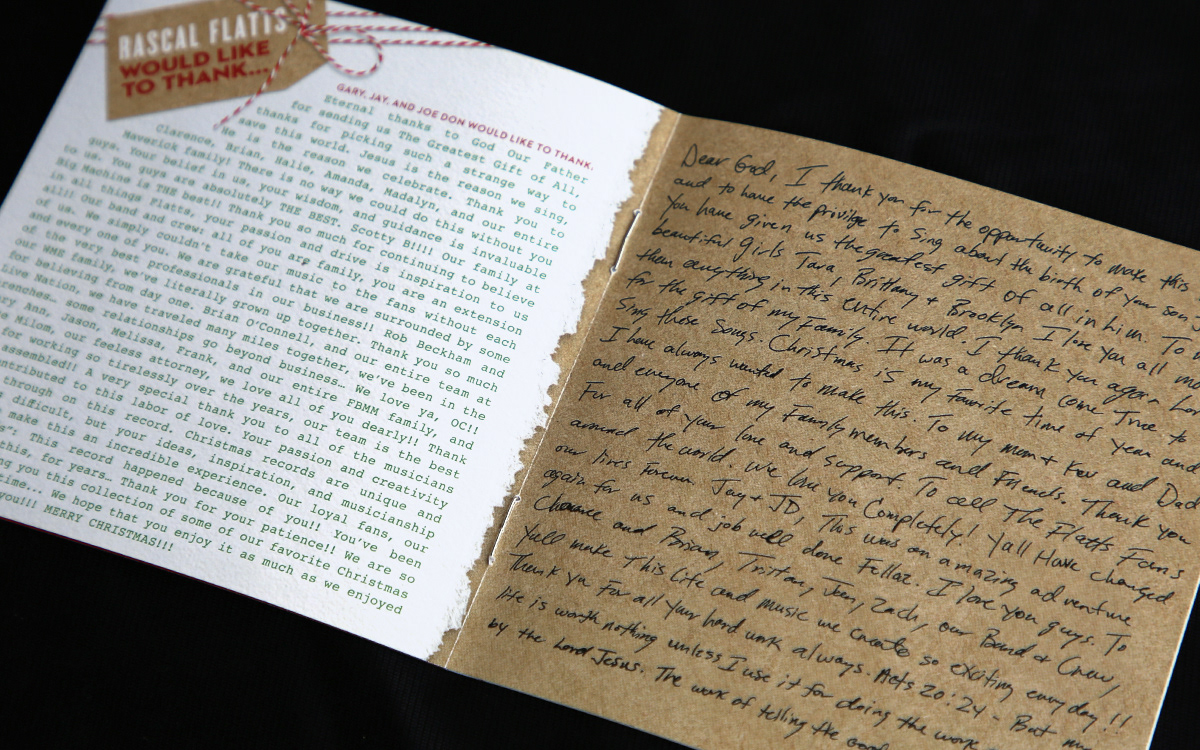 RASCAL FLATTS
WOULD LIKE
TO THANK...
GARY, JAY, AND JOE DON WOULD LIKE TO THANK:
Eternal thanks to God Our Father
for sending us The Greatest Gift of All,
thanks for picking such a strange way to
save this world. Jesus is the reason we sing,
He is the reason we celebrate. Thank you to
Clarence, Brian, Halie, Amanda, Madalyn, and our entire
Maverick family! There is no way we could do this without you
guys. Your belief in us, your wisdom, and guidance is invaluable
to us. You guys are absolutely THE BEST. Scotty B!!!! Our family at
Big Machine is THE best!! Thank you so much for continuing to believe
in all things Flatts, your passion and drive is inspiration to us
all!! Our band and crew: all of you are family, you are an extension
of us. We simply couldn't take our music to the fans without each
and every one of you. We are grateful that we are surrounded by some
of the very best professionals in our business!! Rob Beckham and
our WME family, we've literally grown up together. Thank you so much
for believing from day one. Brian O'Connell, and our entire team at
Live Nation, we have traveled many miles together, we've been in the
trenches… some relationships go beyond business… We love ya, OC!!
Ann, Jason, Melissa, Frank, and our entire FBMM family, and
Milom, our feeless attorney, we love all of you dearly!! Thank
for working so tirelessly over the years, our team is the best
assembled!! A very special thank you to all of the musicians
tributed to this labor of love. Your passion and creativity
through on this record, Christmas records are unique and
difficult, but your ideas, inspiration, and musicianship
make this an incredible experience. Our loyal fans, our
This record happened because of you!! You've been
this, for years… Thank you for your patience!! We are so
you this collection of some of our favorite Christmas
time... We hope that you enjoy it as much as we enjoyed
you!!! MERRY CHRISTMAS!!!
Dear God, I thank you for the opportunity to make this
and to have the privilge to sing about the birth of your son.
You have given us the greatest gift of all in him. To
beautiful girls Tara, Brittany + Brooklyn I love you all
then anything in this entire world. I thank you again Lord
for the gift of my Family. It was a dream come True to
Sing these Songs. Christmas is my favorite time of Year and
I have always wanted to make this. To my mom + Kov and Dad
and everyone of my Family members and Friends. Thank you
For all of your love and support To all The Flatts Fans
around the world. We love you Completely! Yall Have changed
our lives Forever. Jay + JD, This was an amazing adventure
again for us and job well done Fellaz. I love you guys. To
Clarance and Brian, Tristan, Joey, Zach, our Band + Crew,
Yall make This life and music we create so exciting everyday!!
Thank yu For all your hard work always. Acts 20:24 - But my
life is worth nothing unless I use it for doing the work
by the Lord Jesus. The work of telling the Good